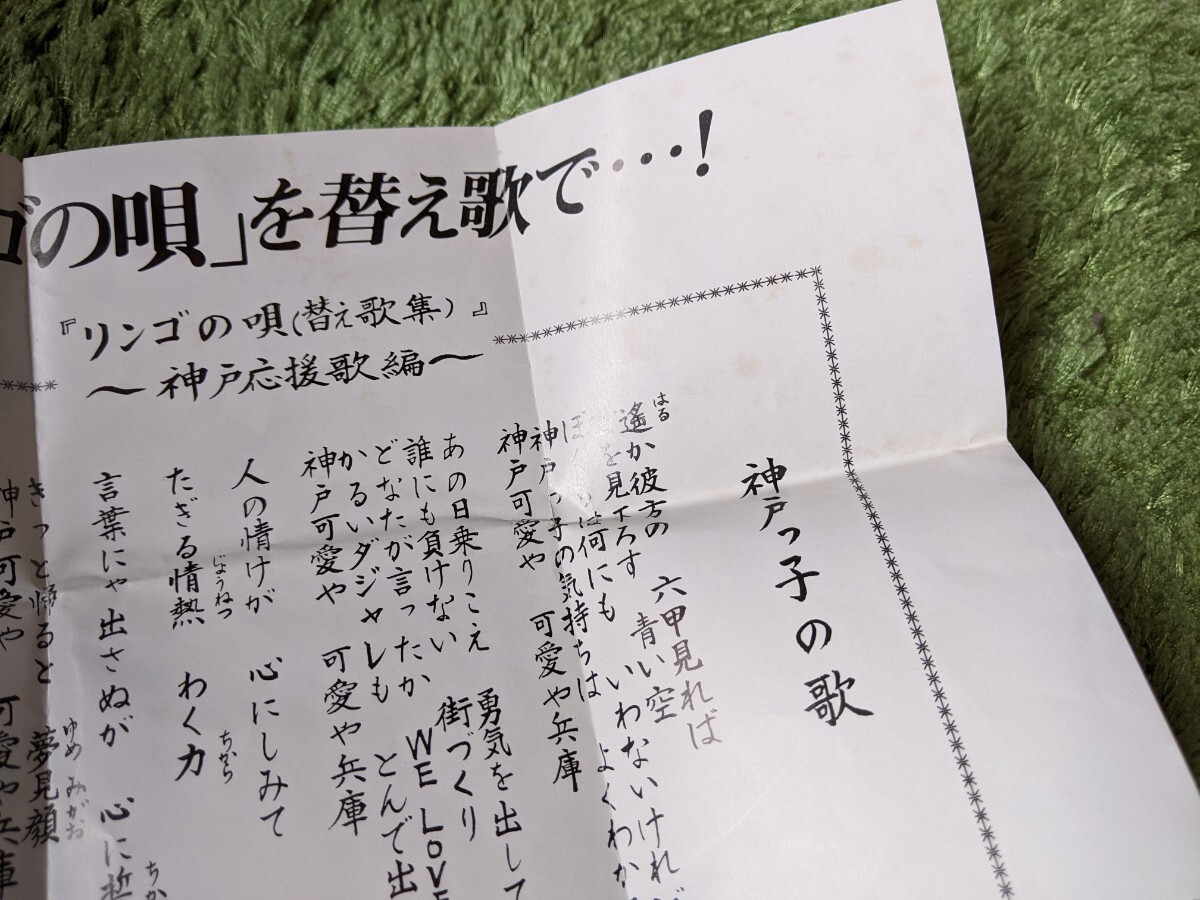 ゴの唄」を替え歌で…!
『リンゴの唄(替え歌集)』
〜神戸応援歌編〜
神戸っ子の歌
遙か彼方の 六甲見れば
はる
を見下ろす 青い空
は何にも いわないけれど
神戸っ子の気持ちは よくわか
神戸可愛や 可愛や兵庫
あの日乗りこえ 勇気を出して
誰にも負けない 街づくり
どなたが言ったか WE LOVE
かるいダジャレも とんで出
神戸可愛や 可愛や兵庫
人の情けが 心にしみて
たぎる情熱 わく力
じょうねつ ちから
言葉にゃ出さぬが 心に
ちか
きっと帰ると 夢見顔
ゆめみがお
神戸可愛や 可愛や兵庫